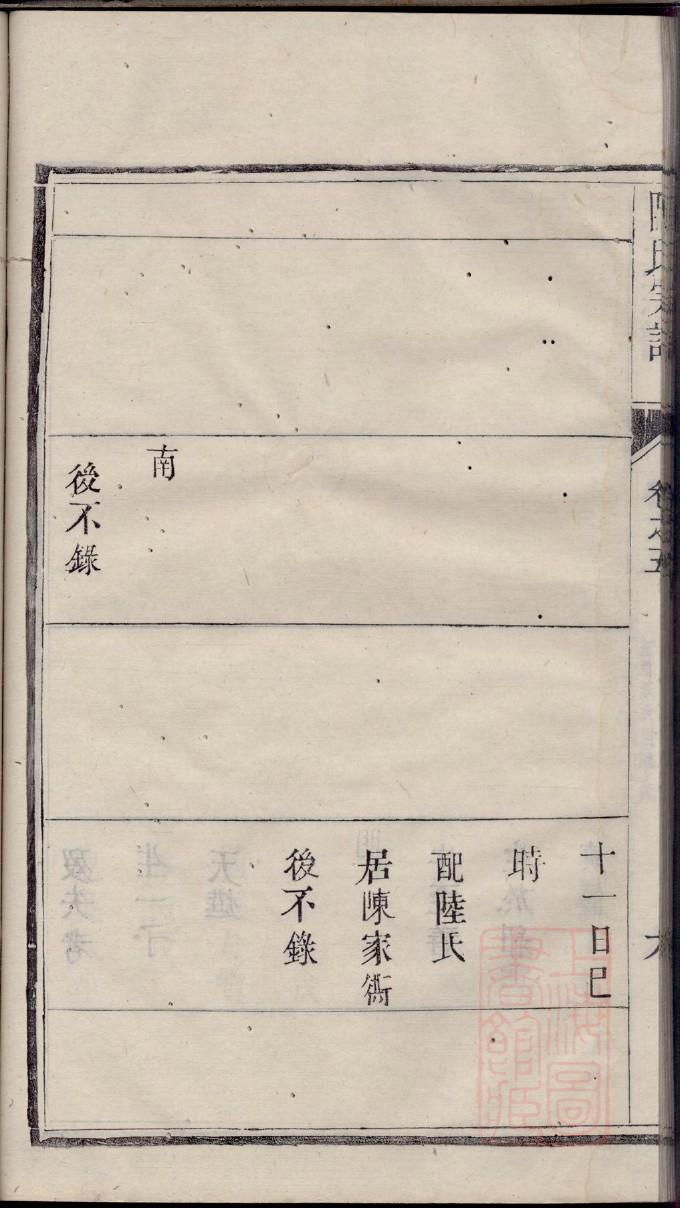 陳氏宗譜
卷之五
六
南
後不錄
十一日巳
時
配陸氏
居陳家衖
後不錄